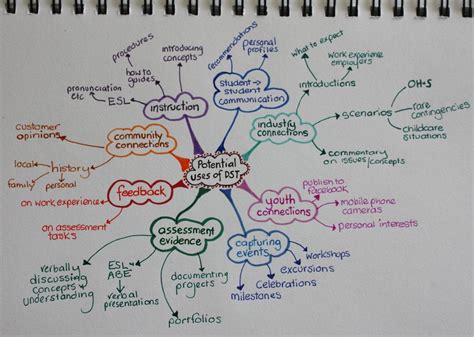 Potential
uses of DST
instruction
procedures
how to
guides
introducing
concepts
pronunciation
etc
ESL
student →
student
communication
recommendations
personal
profiles
industry
connections
introductions
what to expect
work experience
employers
scenarios
OH+S
care
contingencies
childcare
situations
commentary
on issues/concepts
youth
connections
publish to
facebook
mobile phone
cameras
personal interests
capturing
events
workshops
excursions
celebrations
milestones
assessment
evidence
documenting
projects
portfolios
ESL +
ABE
verbal
presentations
verbally
discussing
concepts +
understanding
feedback
on work experience
on assessment
tasks
community
connections
customer
opinions
history
local
family
personal